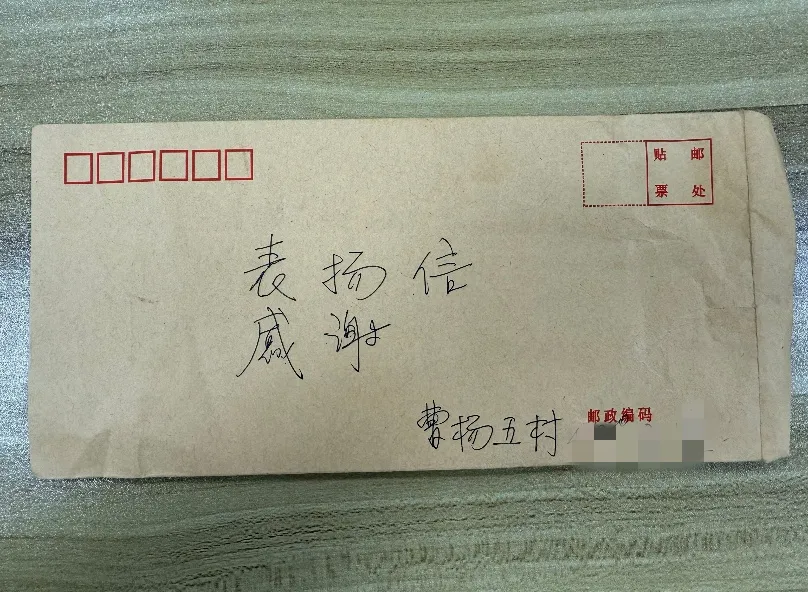 贴 邮
票 处
表扬信
感谢
邮政编码
曹杨五村